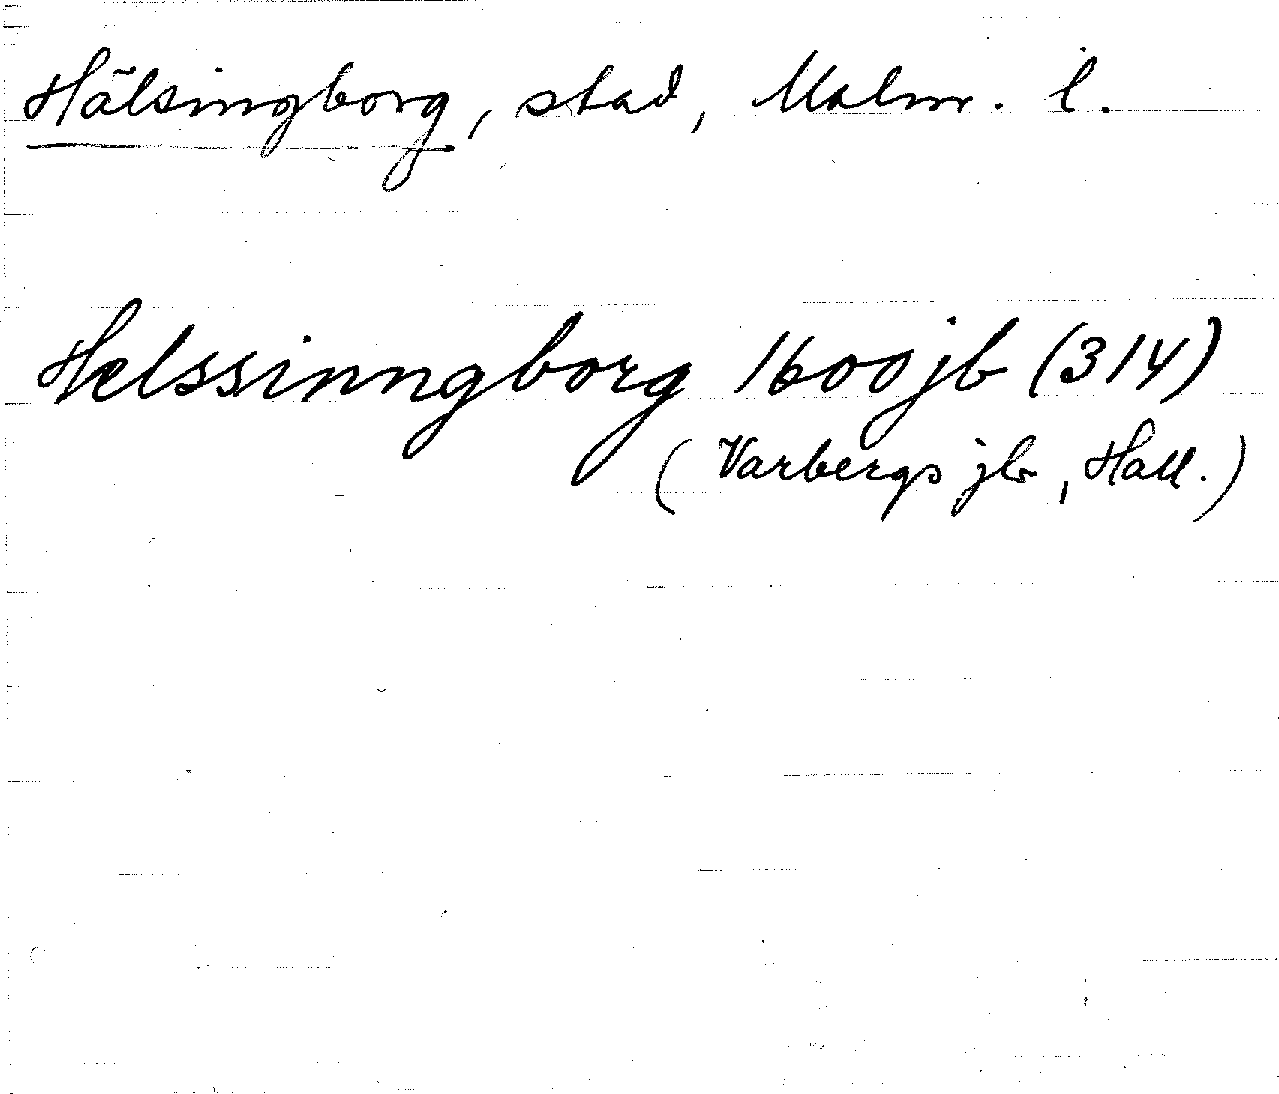 Hälsingborg, stad, Malm. l.
Helssinngborg 1600 jb (314)
(Varbergs jb, Hall.)